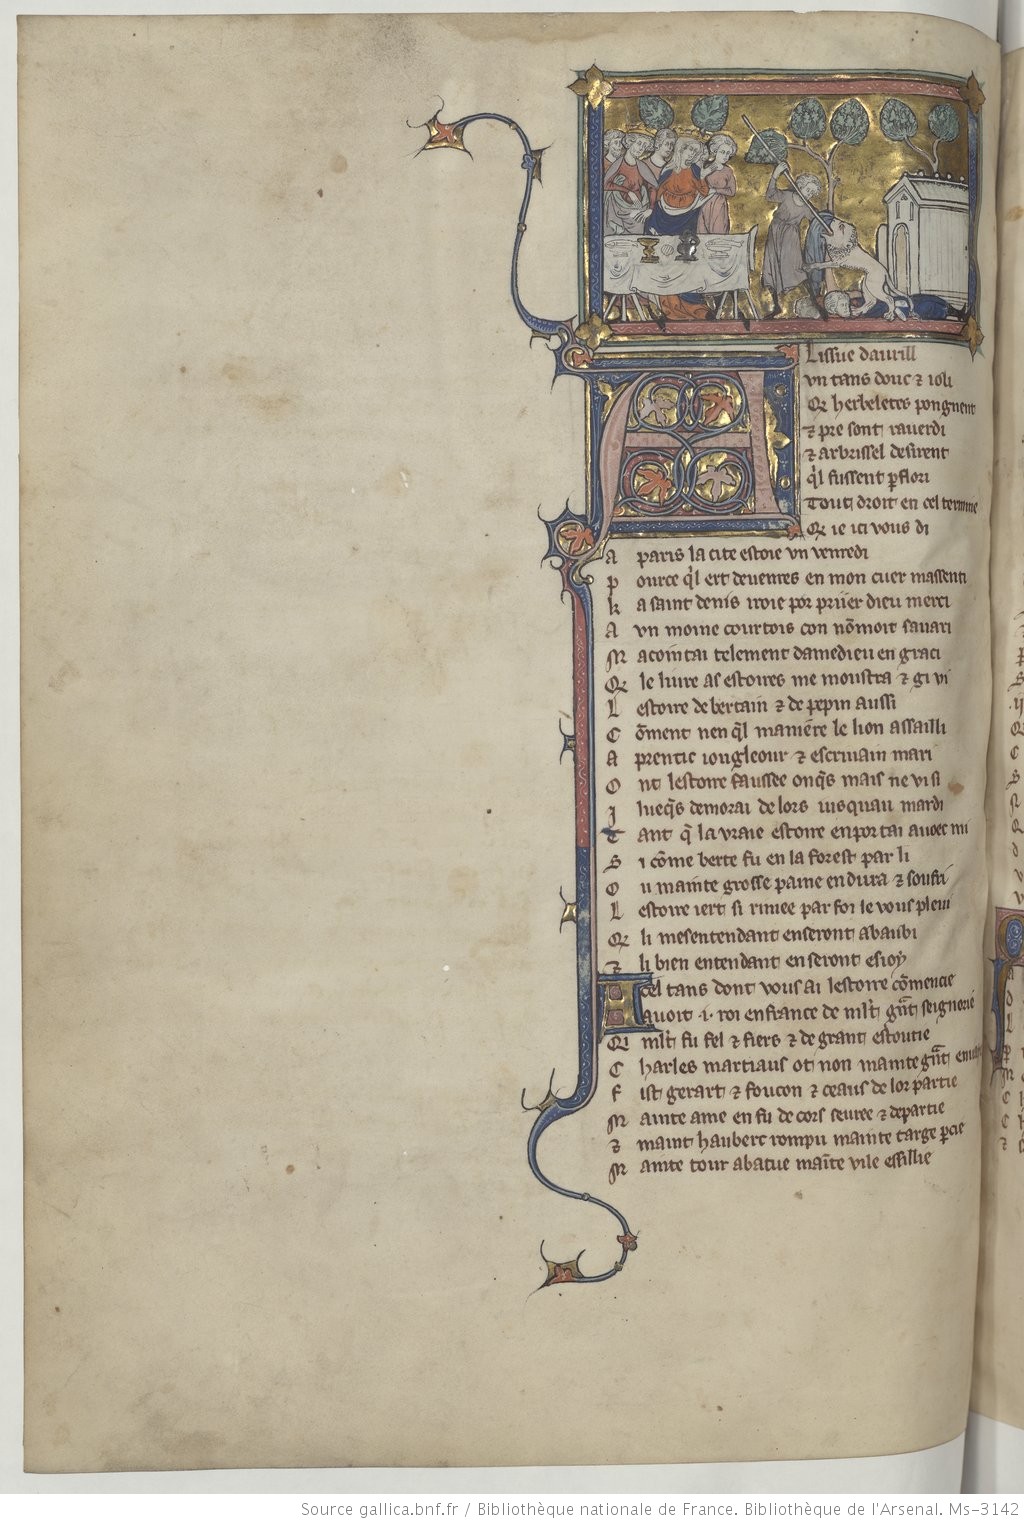 A Lissue daurill
vn tans douc ⁊ ioli
Q̃ herbeletes pongnent
⁊ pre sont rauerdi
⁊ arbrissel desirent
q̃l fussent p̃flori
Tout droit en cel termine
Q̃ ie ici vous di
A paris la cite estoie vn venredi
P ource q̃l ert deuenres en mon cuer massenti
K a saint denis iroie por prijer dieu merci
A vn moine courtois con nõmoit sauari
M acointai telement damedieu en graci
Q̃ le liure as estoires me moustra ⁊ gi vi
L estoire de bertain ⁊ de pepin aussi
C õment nen q̃l maniere le lion assailli
A prentic iougleour ⁊ escriuain mari
O nt lestoire faussee onq̃s mais ne vi si
I lueq̃s demorai de lors iusquau mardi
T ant q̃ la vraie estoire enportai auoec mi
S i cõme berte fu en la forest par li
O u mainte grosse paine endura ⁊ soufri
L estoire iert si rimee par foi le vous pleui
Q̃ li mesentendant enseront abaubi
⁊ li bien entendant en seront esioy
A icel tans dont vous ai lestoire cõmencie
auoit .i. roi en france de ml't gr̃t seignorie
Qi ml't fu fel ⁊ fiers ⁊ de grant estoutie
C harles martiaus ot non mainte gr̃t enuaie
F ist gerart ⁊ foucon ⁊ ceaus de lor partie
M ainte ame en fu de cors seuree ⁊ departie
⁊ maint haubert rompu mainte targe p̃cie
M ainte tour abatue maĩte vile essillie
Source gallica.bnf.fr / Bibliothèque nationale de France. Bibliothèque de l'Arsenal. Ms-3142